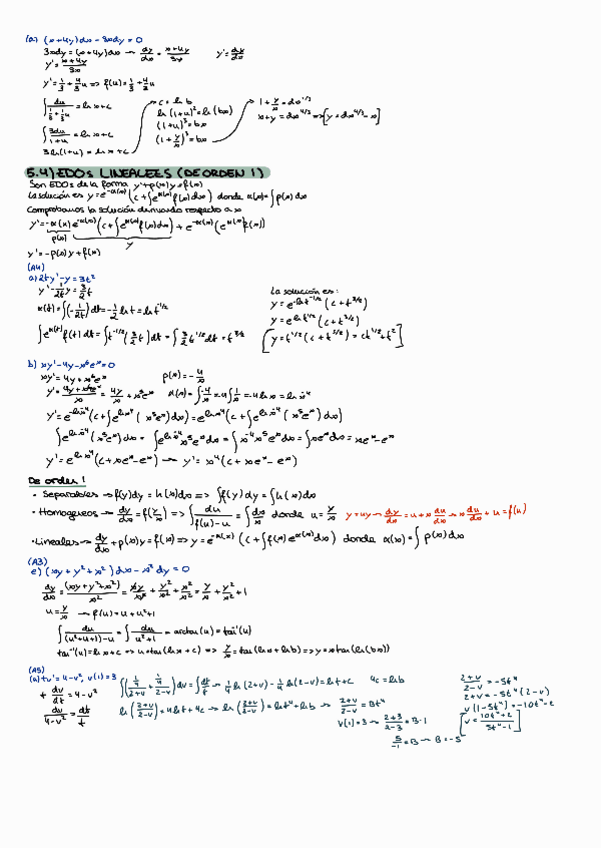 (a) (x+4y)dx - 3xdy = 0
3xdy = (x+4y)dx → dy/dx = (x+4y)/3x   y' = dy/dx
y' = (x+4y)/3x
y' = 1/3 + 4/3 y/x => f(u) = 1/3 + 4/3 u
∫ du/(1/3 + 1/3 u) = ln x + c
∫ 3du/(1+u) = ln x + c
3 ln(1+u) = ln x + c
c = ln b
ln(1+u)³ = ln(bx)
(1+u)³ = bx
(1+y/x)³ = bx
1 + y/x = dx^1/3
x+y = dx^4/3 => [y = dx^4/3 - x]
5.4) EDOs LINEALES (DE ORDEN 1)
Son EDOs de la forma y'+p(x)y = f(x)
La solución es y = e^-α(x) (c + ∫e^α(x) f(x)dx) donde α(x) = ∫p(x)dx
Comprobamos la solución derivando respecto a x
y' = -α'(x) e^-α(x) (c + ∫e^α(x) f(x)dx) + e^-α(x) (e^α(x) f(x))
p(x)   y
y' = -p(x)y + f(x)
(A4)
a) 2ty' - y = 3t²
y' - 1/2t y = 3/2 t
α(t) = ∫(-1/2t)dt = -1/2 ln t = ln t^-1/2
∫e^α(t) f(t)dt = ∫t^-1/2 (3/2 t)dt = ∫3/2 t^1/2 dt = t^3/2
La solución es:
y = e^-ln t^-1/2 (c + t^3/2)
y = e^ln t^1/2 (c + t^3/2)
[y = t^1/2 (c + t^3/2) = ct^1/2 + t²]
b) xy' - 4y - x⁶eˣ = 0
xy' = 4y + x⁶eˣ   p(x) = -4/x
y' = (4y + x⁶eˣ)/x = 4y/x + x⁵eˣ   α(x) = ∫-4/x = -4∫1/x = -4 ln x = ln x⁻⁴
y' = e^-ln x⁻⁴ (c + ∫e^ln x⁻⁴ (x⁵eˣ)dx) = e^ln x⁴ (c + ∫e^ln x⁻⁴ (x⁵eˣ)dx)
∫e^ln x⁻⁴ (x⁵eˣ)dx = ∫e^ln x⁻⁴ x⁵eˣdx = ∫x⁻⁴x⁵eˣdx = ∫xeˣdx = xeˣ - eˣ
y' = e^ln x⁴ (c + xeˣ - eˣ) → y' = x⁴(c + xeˣ - eˣ)
De orden 1
• Separables → f(y)dy = h(x)dx => ∫f(y)dy = ∫h(x)dx
• Homogueos → dy/dx = f(y/x) => ∫du/(f(u)-u) = ∫dx/x donde u = y/x   y = ux → dy/dx = u + x du/dx → x du/dx + u = f(u)
• Lineales → dy/dx + p(x)y = f(x) => y = e^-α(x) (c + ∫f(x)e^α(x)dx) donde α(x) = ∫p(x)dx
(A3)
e) (xy + y² + x²)dx - x²dy = 0
dy/dx = (xy+y²+x²)/x² = xy/x² + y²/x² + x²/x² = y/x + y²/x² + 1
u = y/x → f(u) = u + u² + 1
∫du/((u²+u+1)-u) = ∫du/(u²+1) = arctan(u) = tan⁻¹(u)
tan⁻¹(u) = ln x + c => u = tan(ln x + c) => y/x = tan(ln x + ln b) => y = x tan(ln(bx))
(A5)
(a) tv' = 4 - v², v(1) = 3
t dv/dt = 4 - v²
dv/(4-v²) = dt/t
∫((1/4)/(2+v) + (1/4)/(2-v))dv = ∫dt/t → 1/4 ln(2+v) - 1/4 ln(2-v) = ln t + c   4c = ln b
ln((2+v)/(2-v)) = 4 ln t + 4c → ln((2+v)/(2-v)) = ln t⁴ + ln b → (2+v)/(2-v) = Bt⁴
v(1) = 3 → (2+3)/(2-3) = B·1
5/-1 = B → B = -5
(2+v)/(2-v) = -5t⁴
2+v = -5t⁴(2-v)
v(1-5t⁴) = -10t⁴-2
[v = (10t⁴+2)/(5t⁴-1)]